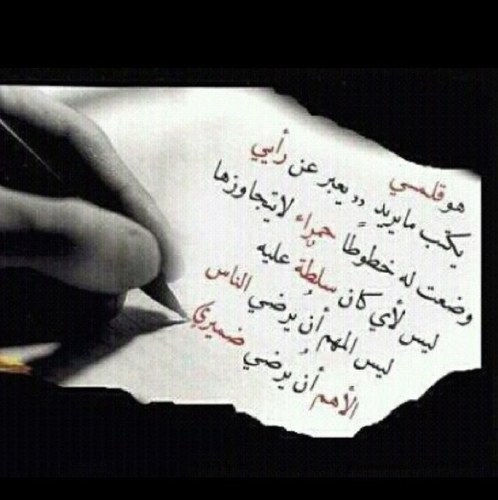 هو قلمي
يكتب ما يريد ,, يعبر عن رأيي
وضعت له خطوطًا حمراء لا يتجاوزها
ليس لأي كان سلطةٌ عليه
ليس المهم أن يُرضي الناس
الأهم أن يُرضي ضميري